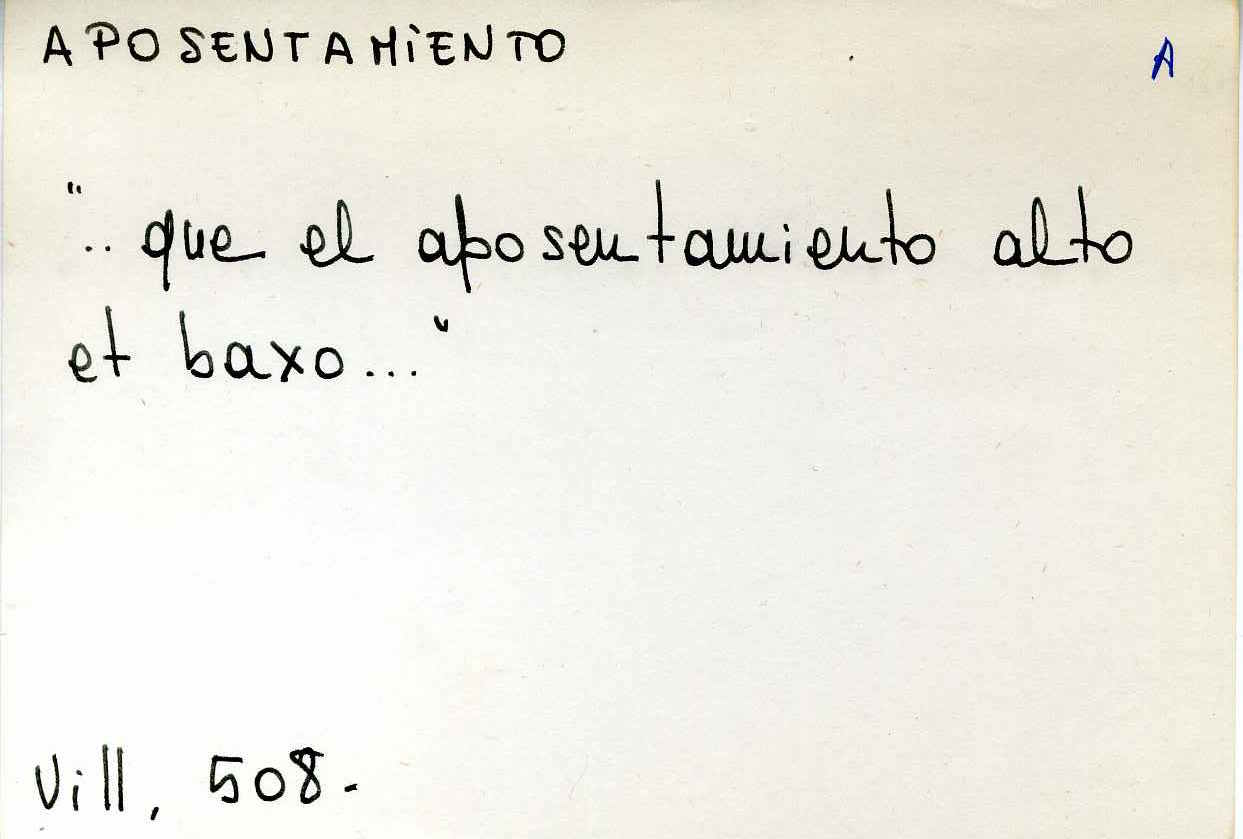 APOSENTAMIENTO A
".. que el aposentamiento alto
et baxo..."
Vill, 508.-